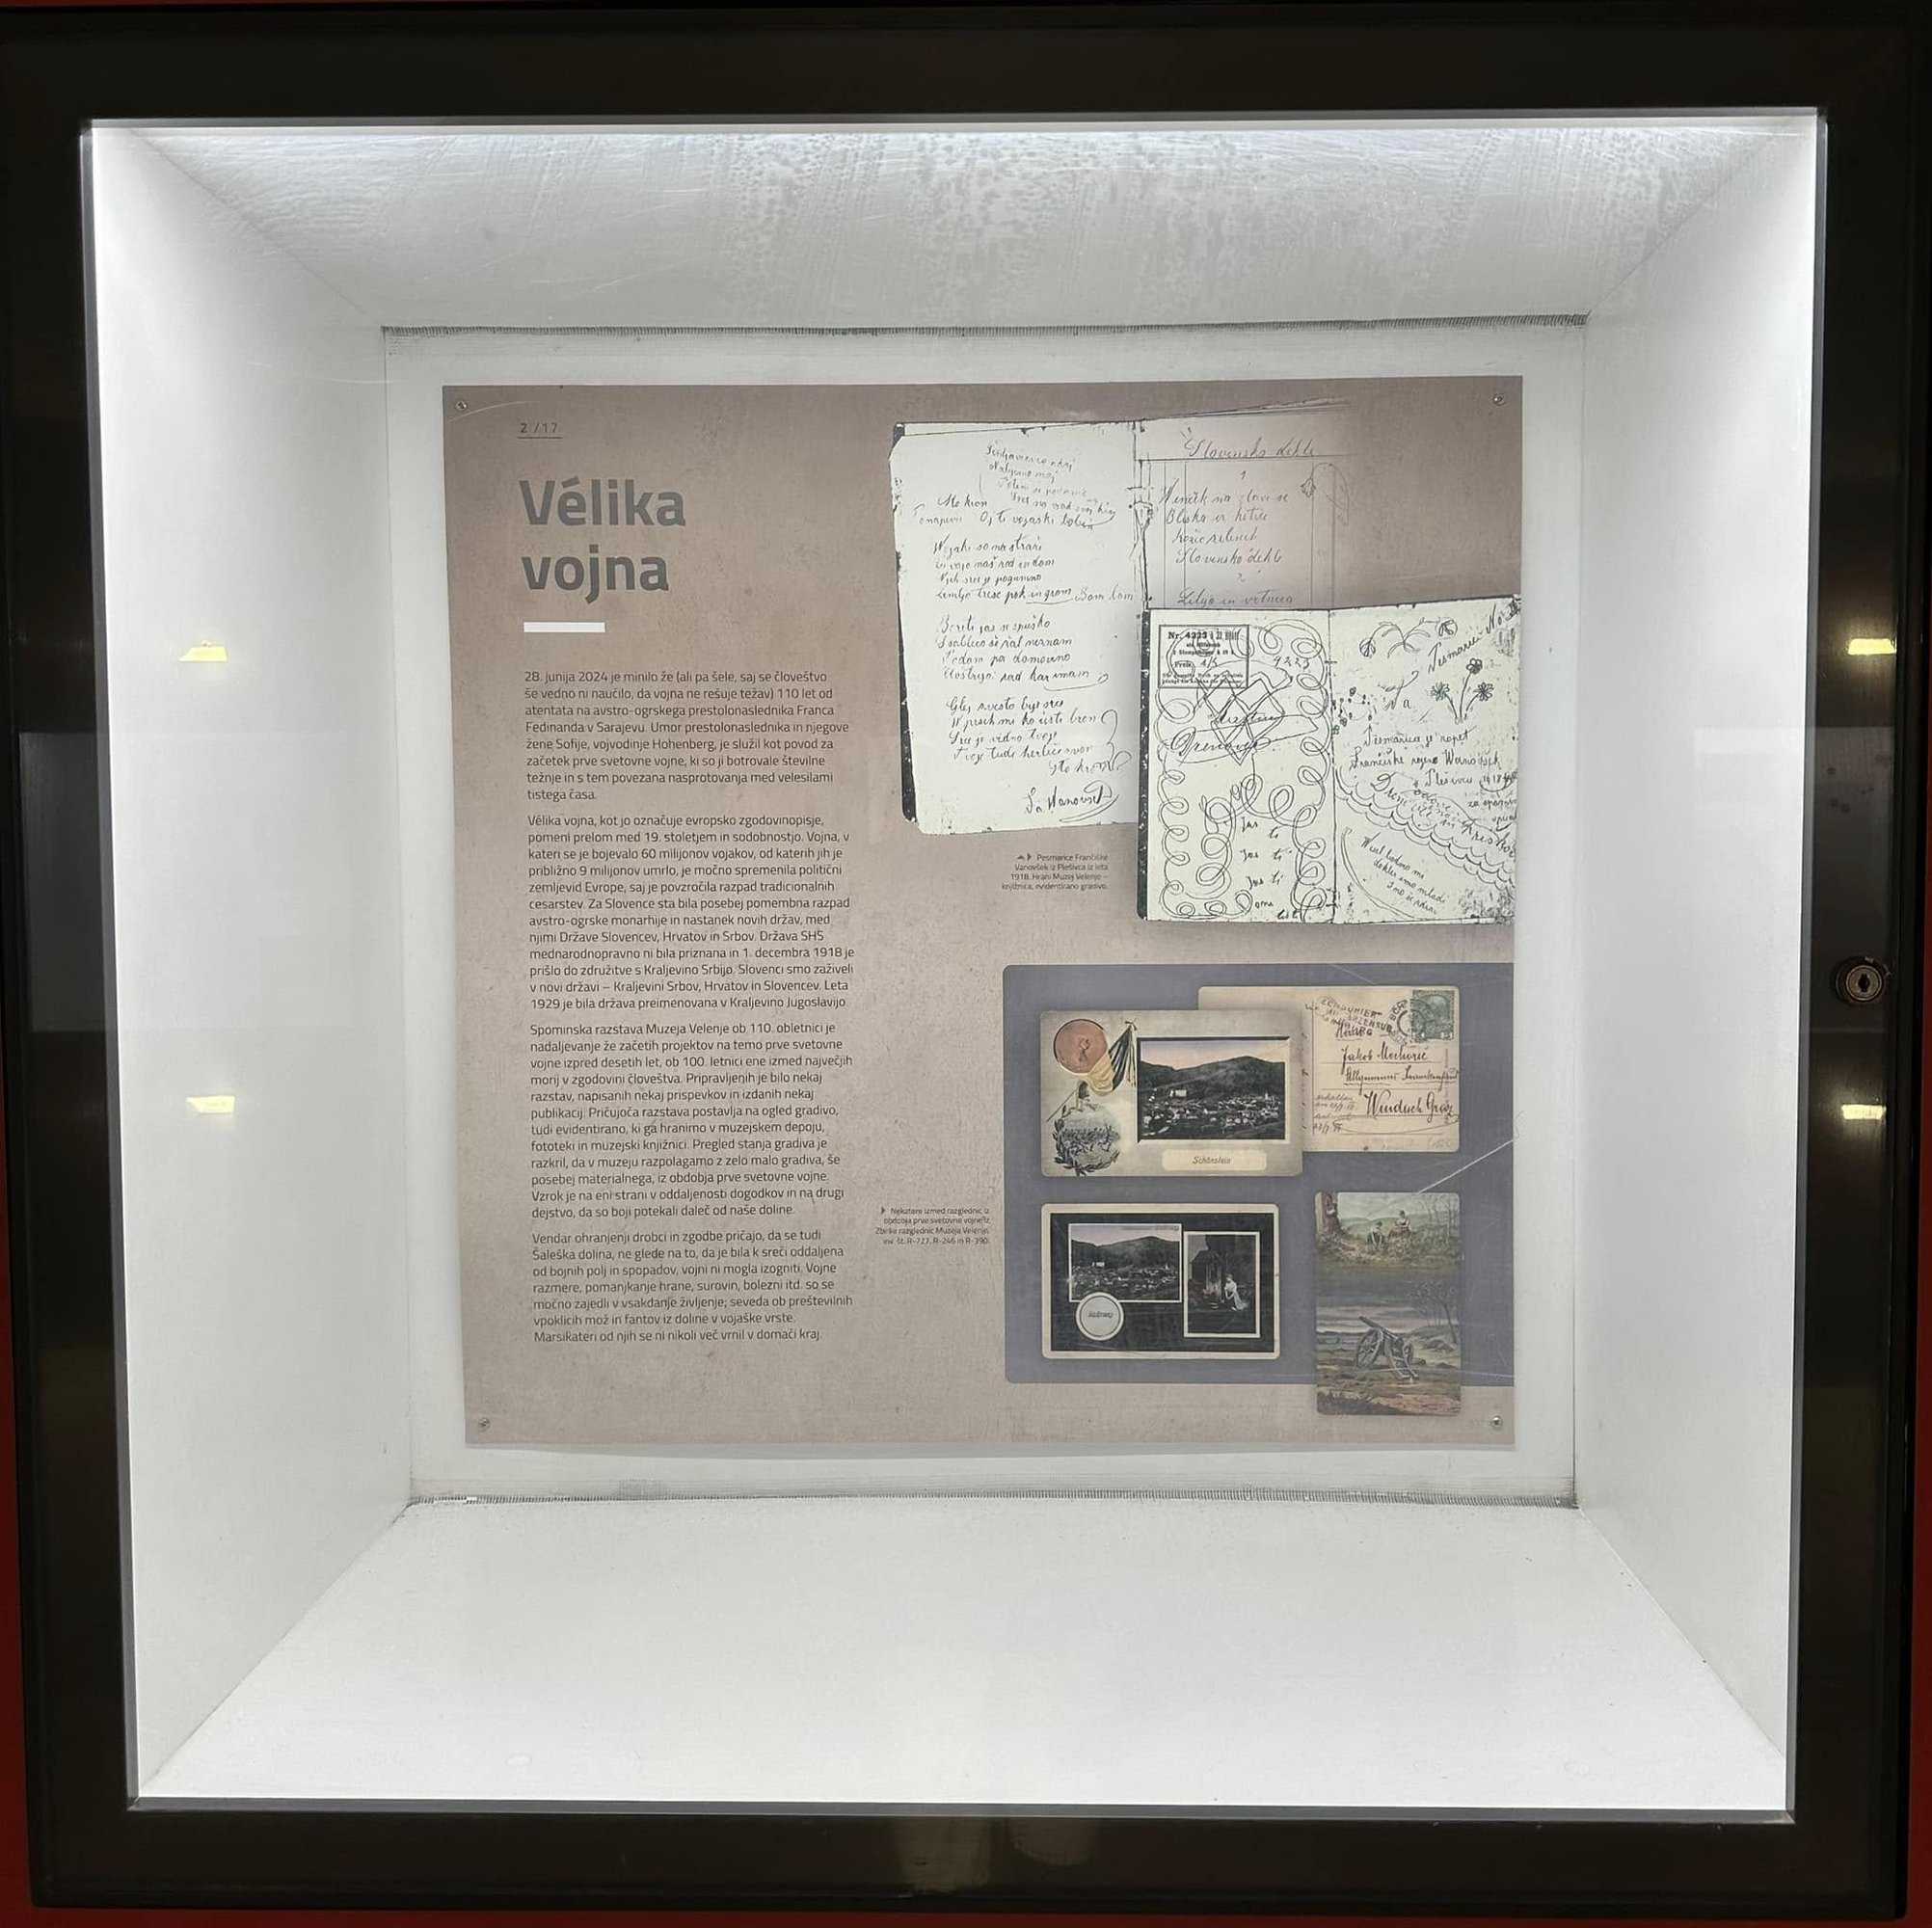 2 / 17
Vélika
vojna
28. junija 2024 je minilo že (ali pa šele, saj se človeštvo
še vedno ni naučilo, da vojna ne rešuje težav) 110 let od
atentata na avstro-ogrskega prestolonaslednika Franca
Fedinanda v Sarajevu. Umor prestolonaslednika in njegove
žene Sofije, vojvodinje Hohenberg, je služil kot povod za
začetek prve svetovne vojne, ki so ji botrovale številne
težnje in s tem povezana nasprotovanja med velesilami
tistega časa.
Vélika vojna, kot jo označuje evropsko zgodovinopisje,
pomeni prelom med 19. stoletjem in sodobnostjo. Vojna, v
kateri se je bojevalo 60 milijonov vojakov, od katerih jih je
približno 9 milijonov umrlo, je močno spremenila politični
zemljevid Evrope, saj je povzročila razpad tradicionalnih
cesarstev. Za Slovence sta bila posebej pomembna razpad
avstro-ogrske monarhije in nastanek novih držav, med
njimi Države Slovencev, Hrvatov in Srbov. Država SHS
mednarodnopravno ni bila priznana in 1. decembra 1918 je
prišlo do združitve s Kraljevino Srbijo. Slovenci smo zaživeli
v novi državi – Kraljevini Srbov, Hrvatov in Slovencev. Leta
1929 je bila država preimenovana v Kraljevino Jugoslavijo.
Spominska razstava Muzeja Velenje ob 110. obletnici je
nadaljevanje že začetih projektov na temo prve svetovne
vojne izpred desetih let, ob 100. letnici ene izmed največjih
morij v zgodovini človeštva. Pripravljenih je bilo nekaj
razstav, napisanih nekaj prispevkov in izdanih nekaj
publikacij. Pričujoča razstava postavlja na ogled gradivo,
tudi evidentirano, ki ga hranimo v muzejskem depoju,
fototeki in muzejski knjižnici. Pregled stanja gradiva je
razkril, da v muzeju razpolagamo z zelo malo gradiva, še
posebej materialnega, iz obdobja prve svetovne vojne.
Vzrok je na eni strani v oddaljenosti dogodkov in na drugi
dejstvo, da so boji potekali daleč od naše doline.
Vendar ohranjenji drobci in zgodbe pričajo, da se tudi
Šaleška dolina, ne glede na to, da je bila k sreči oddaljena
od bojnih polj in spopadov, vojni ni mogla izogniti. Vojne
razmere, pomanjkanje hrane, surovin, bolezni itd. so se
močno zajedli v vsakdanje življenje; seveda ob preštevilnih
vpoklicih mož in fantov iz doline v vojaške vrste.
Marsikateri od njih se ni nikoli več vrnil v domači kraj.
Slovensko dekle
1
Slovensko dekle
Pesmarice Frančiške
Vanovšek iz Plešivca iz leta
1918. Hrani Muzej Velenje –
knjižnica, evidentirano gradivo.
Nr. 4323
Preis
4323
Jas ti
Jas ti
Nekatere izmed razglednic iz
obdobja prve svetovne vojne iz
Zbirke razglednic Muzeja Velenje,
inv. št. R-727, R-246 in R-390.
Jakob
Windisch Graz
Schönstein